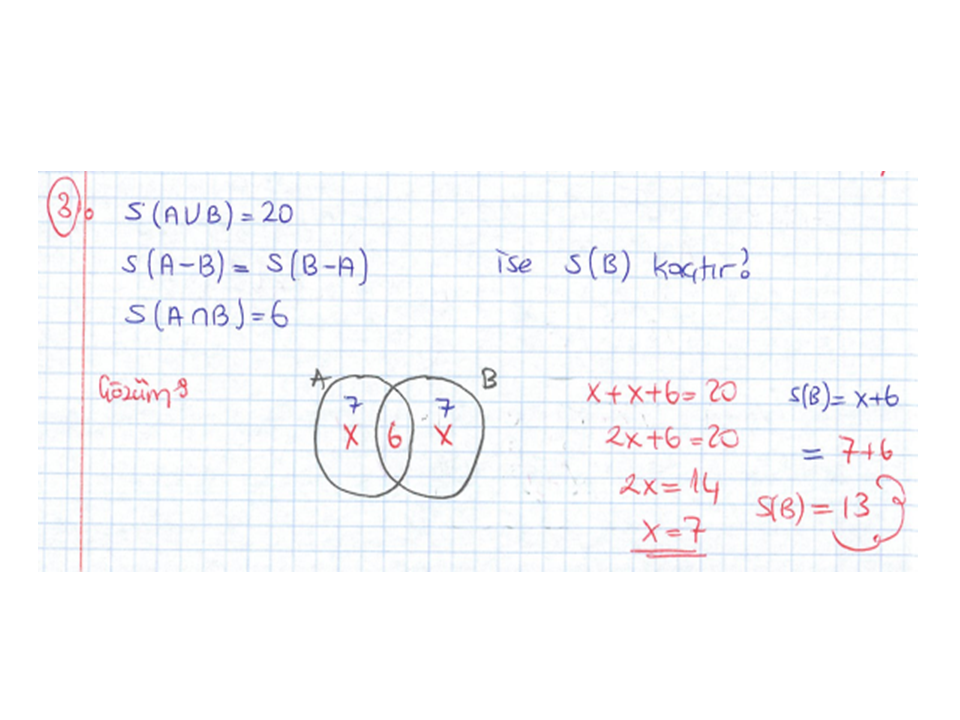 3. S(A∪B)=20
S(A-B)= S(B-A) ise S(B) kaçtır?
S(A∩B)=6
Çözüm:
A B
7 7
x 6 x
x+x+6=20
2x+6=20
2x=14
x=7
S(B)= x+6
= 7+6
S(B)=13